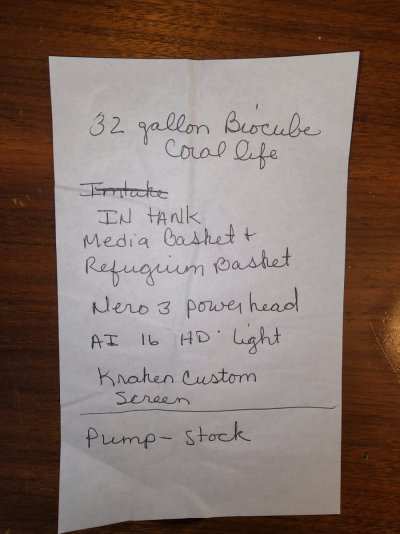 32 gallon Biocube
Coral life
Intake
IN tANK
Media Basket +
Refugium Basket
Nero 3 powerhead
AI 16 HD Light
Kraken Custom
Screen
Pump - Stock